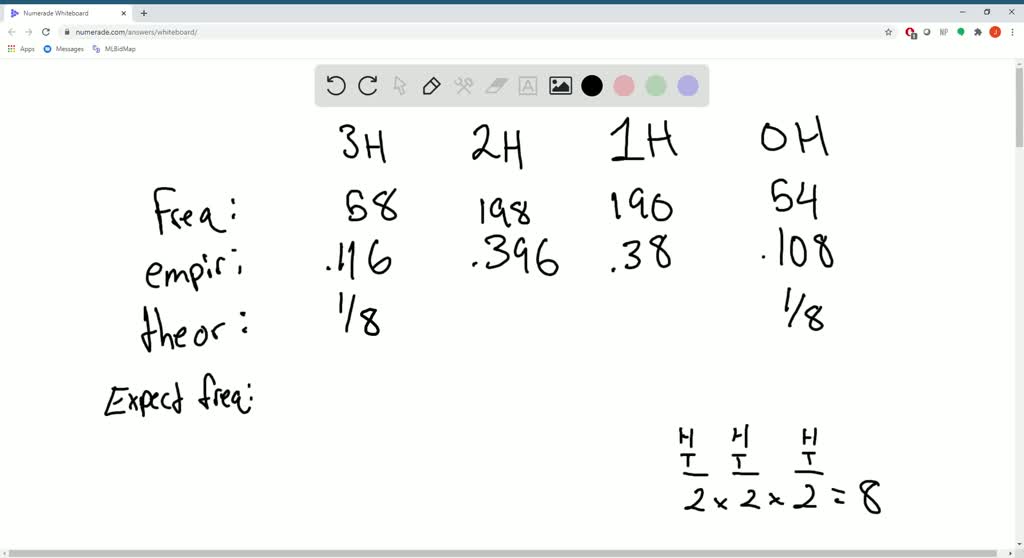 Numerade Whiteboard
numerade.com/answers/whiteboard/
Apps Messages MLBidMap
3H 2H 1H 0H
Freq: 58 198 190 54
empir: .116 .396 .38 .108
theor: 1/8 1/8
Expect freq:
H H H
T T T
2 x 2 x 2 = 8